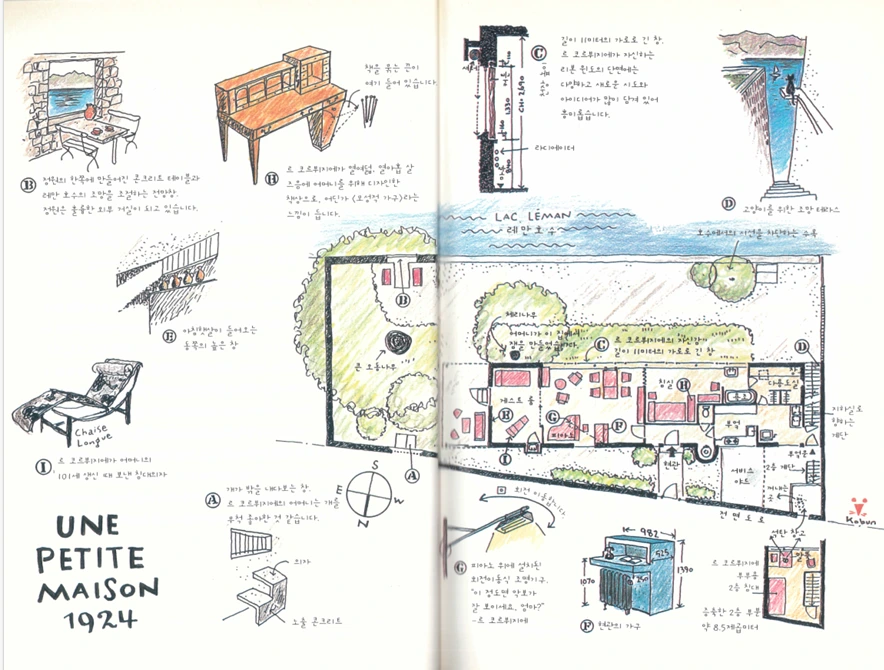 책을 묶는 끈이
여기 들어 있습니다.
B 정원의 한쪽에 만들어진 콘크리트 테이블과
레만 호수의 조망을 조절하는 전망창.
정원은 훌륭한 외부 거실이 되고 있습니다.
H 르 코르뷔지에가 열여덟, 열아홉 살
즈음에 어머니를 위해 디자인한
책상으로, 어딘가 (모성적 가구)라는
느낌이 듭니다.
C 길이 11미터의 가로로 긴 창.
르 코르뷔지에가 자신하는
리본 윈도의 단면에는
다양하고 새로운 시도와
아이디어가 많이 담겨 있어
흥미롭습니다.
CH=2690
1330
라디에이터
D 고양이를 위한 조망 테라스
LAC LÉMAN
레만 호수
호수에서의 시선을 차단하는 수목
E 아침햇살이 들어오는
동쪽의 높은 창
Chaise
Longue
I 르 코르뷔지에가 어머니의
101세 생신 때 보낸 침대의자
B
큰 오동나무
A
체리나무
어머니가 이 집에서
잼을 만들었습니다
C 르 코르뷔지에의 자신작인
길이 11미터의 가로로 긴 창
D
게스트 룸
E
I
G
피아노
F
침실
H
욕실
다용도실
부엌
부엌문
현관
서비스
야드
2층 계단
지하실로
향하는
계단
전면 도로
Kobun
A 개가 밖을 내다보는 창.
르 코르뷔지에의 어머니는 개를
무척 좋아한 것 같습니다.
S
E
W
N
의자
노출 콘크리트
UNE
PETITE
MAISON
1924
회전 이동합니다
G 피아노 위에 설치된
회전이동식 조명기구.
"이 정도면 악보가
잘 보이세요, 엄마?"
-르 코르뷔지에
982
525
1070
1390
F 현관의 가구
르 코르뷔지에
부부용
2층 침대
증축한 2층 부분
약 8.5제곱미터